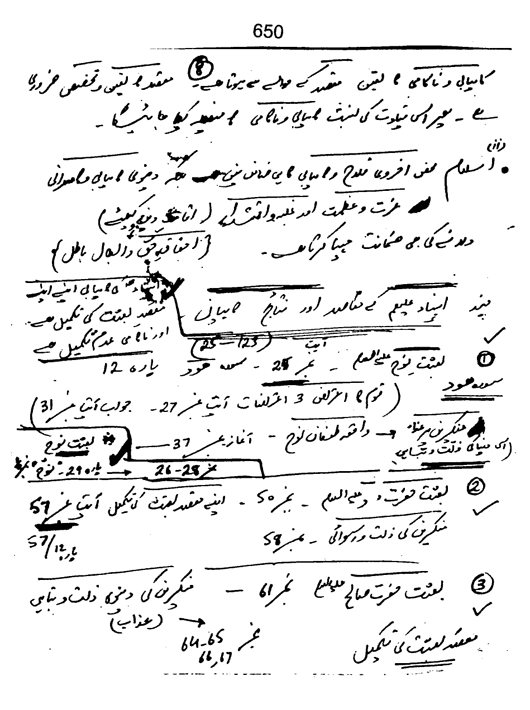 650
کامیابی و ناکامی کا تعین مقصد کے حوالے سے ہوتا ہے۔ ⑧ مقصد کا تعین و تشخیص ضروری
ہے ۔ پھر اسی قیادت کی نسبت کامیابی و ناکامی کا فیصلہ کیا جائیگا ۔
• اسلام محض اخروی فلاح و کامیابی کا ہی ضامن نہیں بلکہ دنیوی کامیابی و کامرانی
عزت و عظمت اور غلبہ و اقتدار
دلانے کی بھی ضمانت مہیا کرتا ہے ۔ {احقاق حق و ابطال باطل}
چند انبیاء علیہم کے مقاصد اور نتائج کامیابی
مقصد بعثت کی تکمیل ہے
اور ناکامی عدم تکمیل ہے
آیت (25–23)
① بعثت نوح علیہ السلام ۔ نمبر 25 ۔ سورہ ھود پارہ 12
سورہ ھود
(قوم کا اعتراض 3 اعتراضات آیت نمبر 27 ۔ جواب آیت نمبر 31)
منکرین → واقعہ طوفان نوح ۔ آغاز نمبر 37 بعثت نوح
(کی دنیاوی ذلت و تباہی) نمبر 28-26 ← پارہ 29 ۔ نوح
② بعثت حضرت ھود علیہ السلام ۔ نمبر 50 ۔ اپنے مقصد بعثت کی تکمیل آیت نمبر 57
منکرین کی ذلت و رسوائی ۔ نمبر 58 57/پارہ 12
③ بعثت حضرت صالح علیہ السلام نمبر 61 — منکرین کی دنیوی ذلت و تباہی
(عذاب) →
نمبر 64-65
66,67
مقصد بعثت کی تکمیل